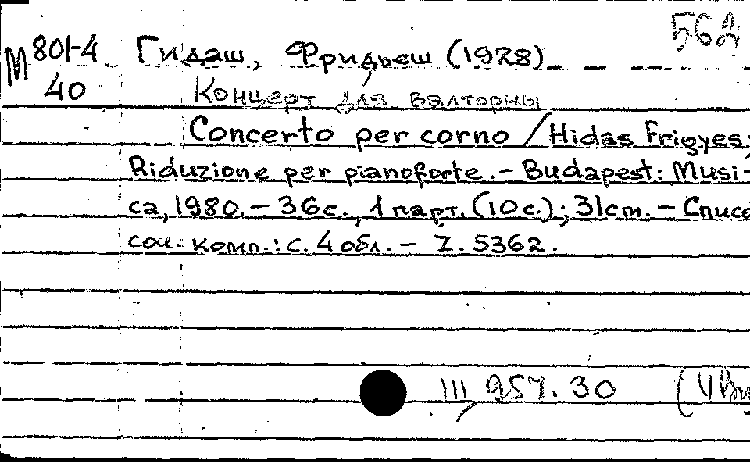 562
М 801-4 Гидаш, Фридьеш (1928)
40 Концерт для валторны
Concerto per corno / Hidas Frigyes;
Riduzione per pianoforte. - Budapest: Musi-
ca, 1980. - 36с., 1 парт. (10с.); 31cm. - Списо
соч. комп.: с. 4 обл. - Z. 5362.
III, 957.30